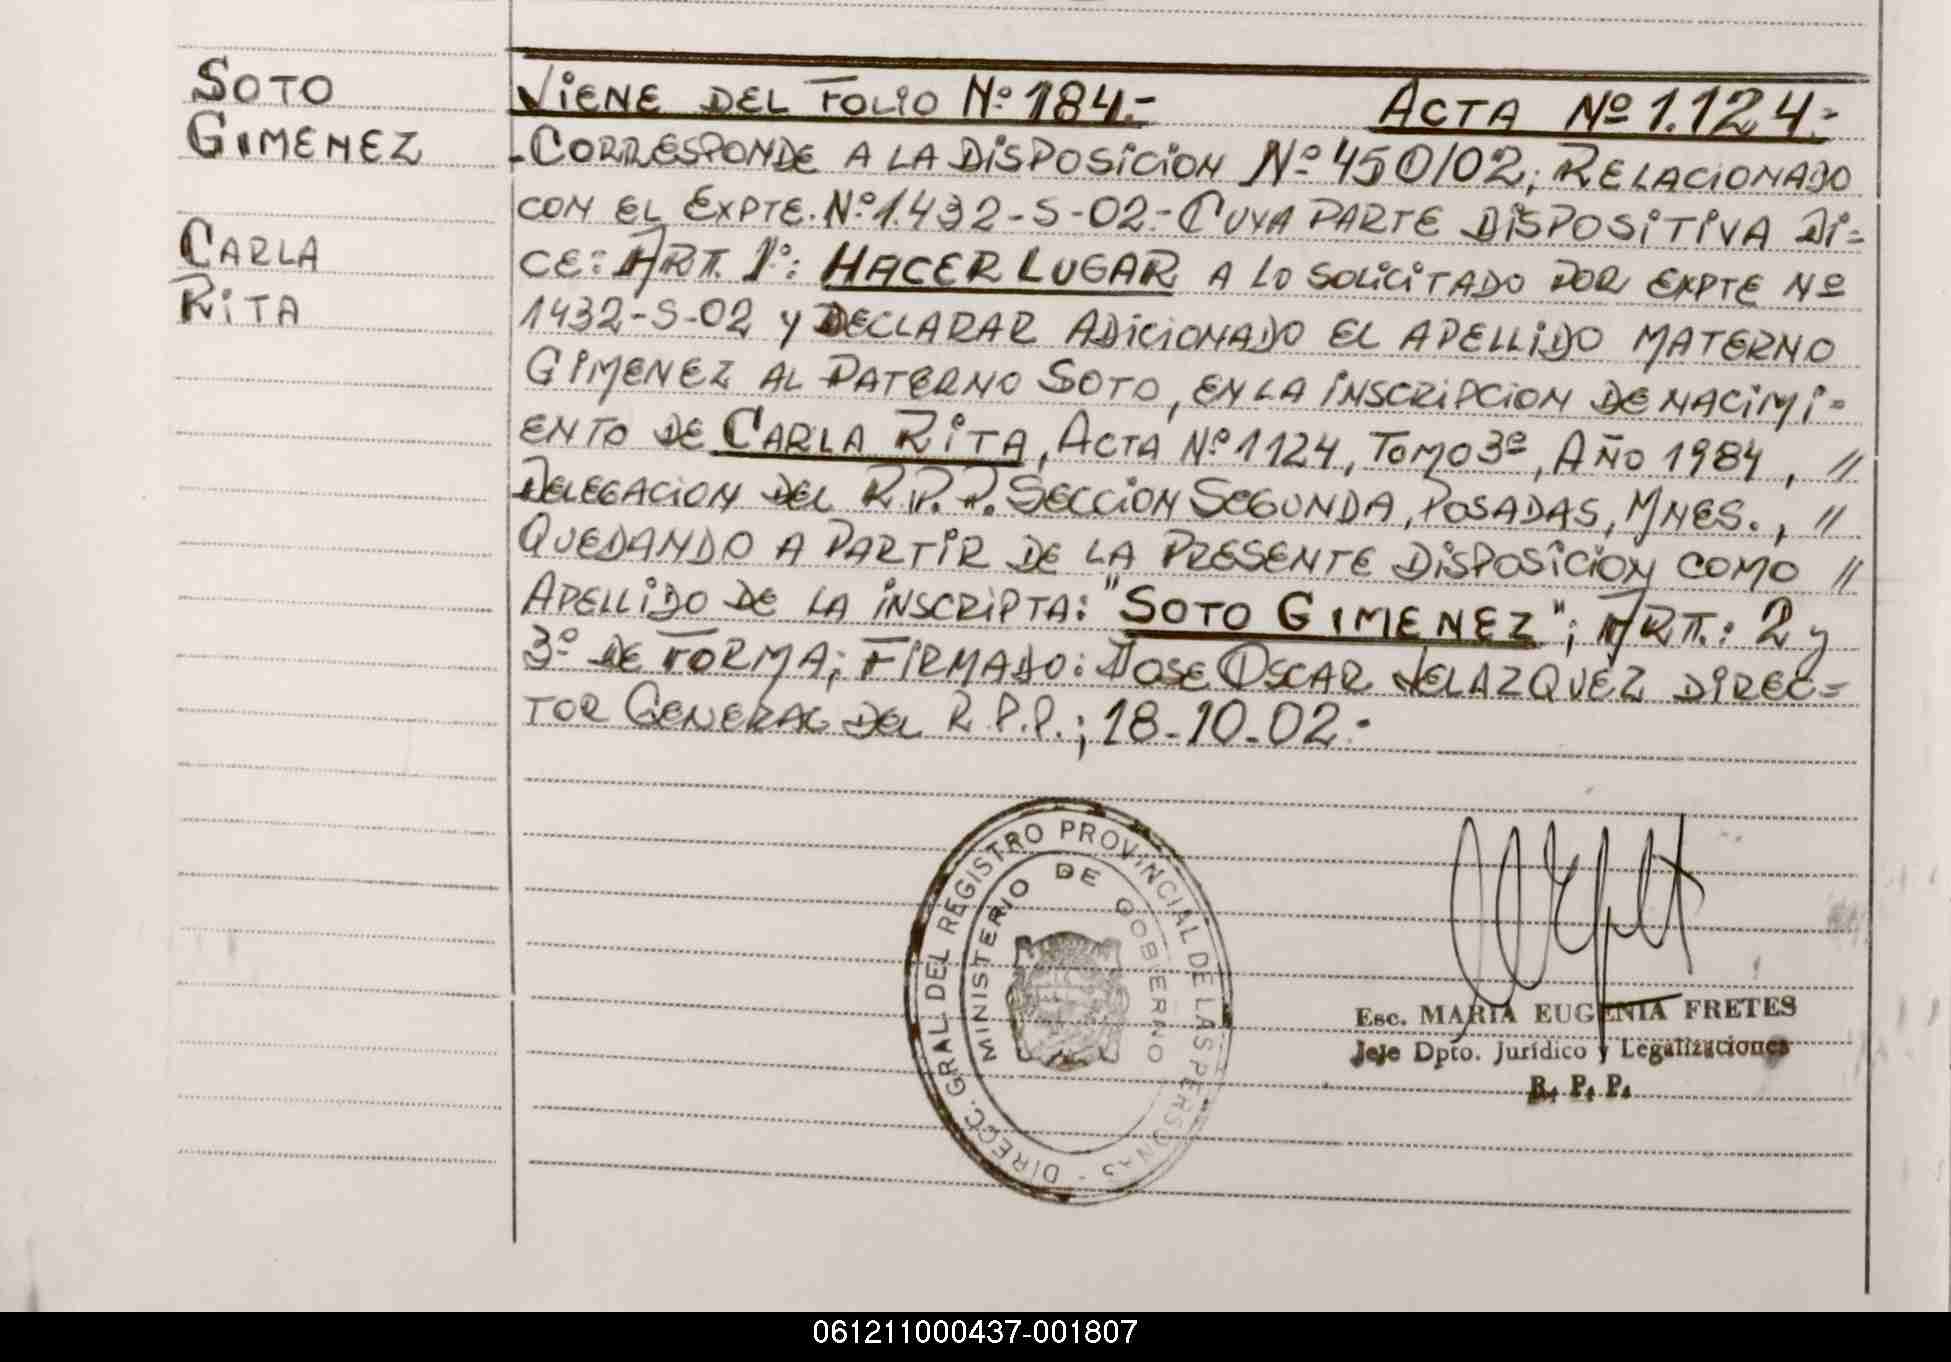 SOTO
GIMENEZ
CARLA
RITA
VIENE DEL FOLIO Nº 184.- ACTA Nº 1.124.-
-CORRESPONDE A LA DISPOSICION Nº 450/02; RELACIONADO
CON EL EXPTE. Nº 1.432-S-02.- CUYA PARTE DISPOSITIVA DI=
CE: ART. 1º: HACER LUGAR A LO SOLICITADO POR EXPTE Nº
1432-S-02 Y DECLARAR ADICIONADO EL APELLIDO MATERNO
GIMENEZ AL PATERNO SOTO, EN LA INSCRIPCION DE NACIMI=
ENTO DE CARLA RITA, ACTA Nº 1124, TOMO 3º, AÑO 1984, //
DELEGACION DEL R.P.P. SECCION SEGUNDA, POSADAS, MNES., //
QUEDANDO A PARTIR DE LA PRESENTE DISPOSICION COMO //
APELLIDO DE LA INSCRIPTA: "SOTO GIMENEZ"; ART.: 2 y
3º DE FORMA; FIRMADO: JOSE OSCAR VELAZQUEZ DIREC=
TOR GENERAL DEL R.P.P.; 18-10-02.-
DIRECC. GRAL DEL REGISTRO PROVINCIAL DE LAS PERSONAS -
MINISTERIO DE GOBIERNO
Esc. MARIA EUGENIA FRETES
Jefe Dpto. Jurídico y Legalizaciones
R. P. P.
061211000437-001807